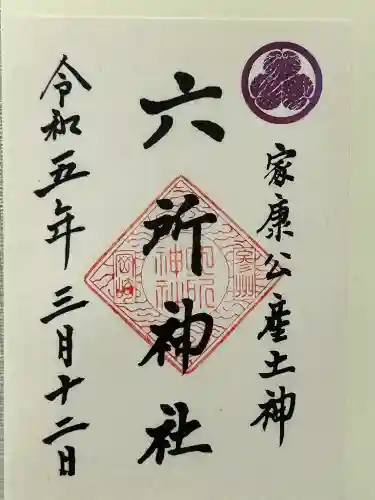 家康公産土神
六所神社
令和五年三月十二日
参州
六所神社
岡崎